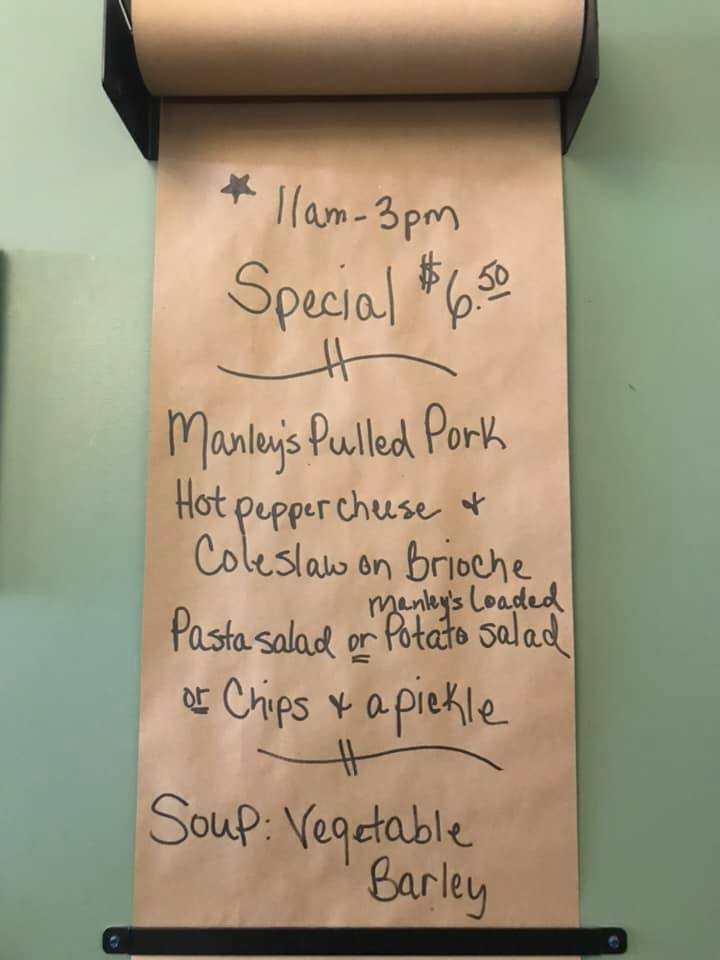 ★ 11am-3pm
Special $6.50
Manley's Pulled Pork
Hot pepper cheese &
Coleslaw on Brioche
Manley's Loaded
Pasta salad or Potato salad
or Chips & a pickle
Soup: Vegetable
Barley